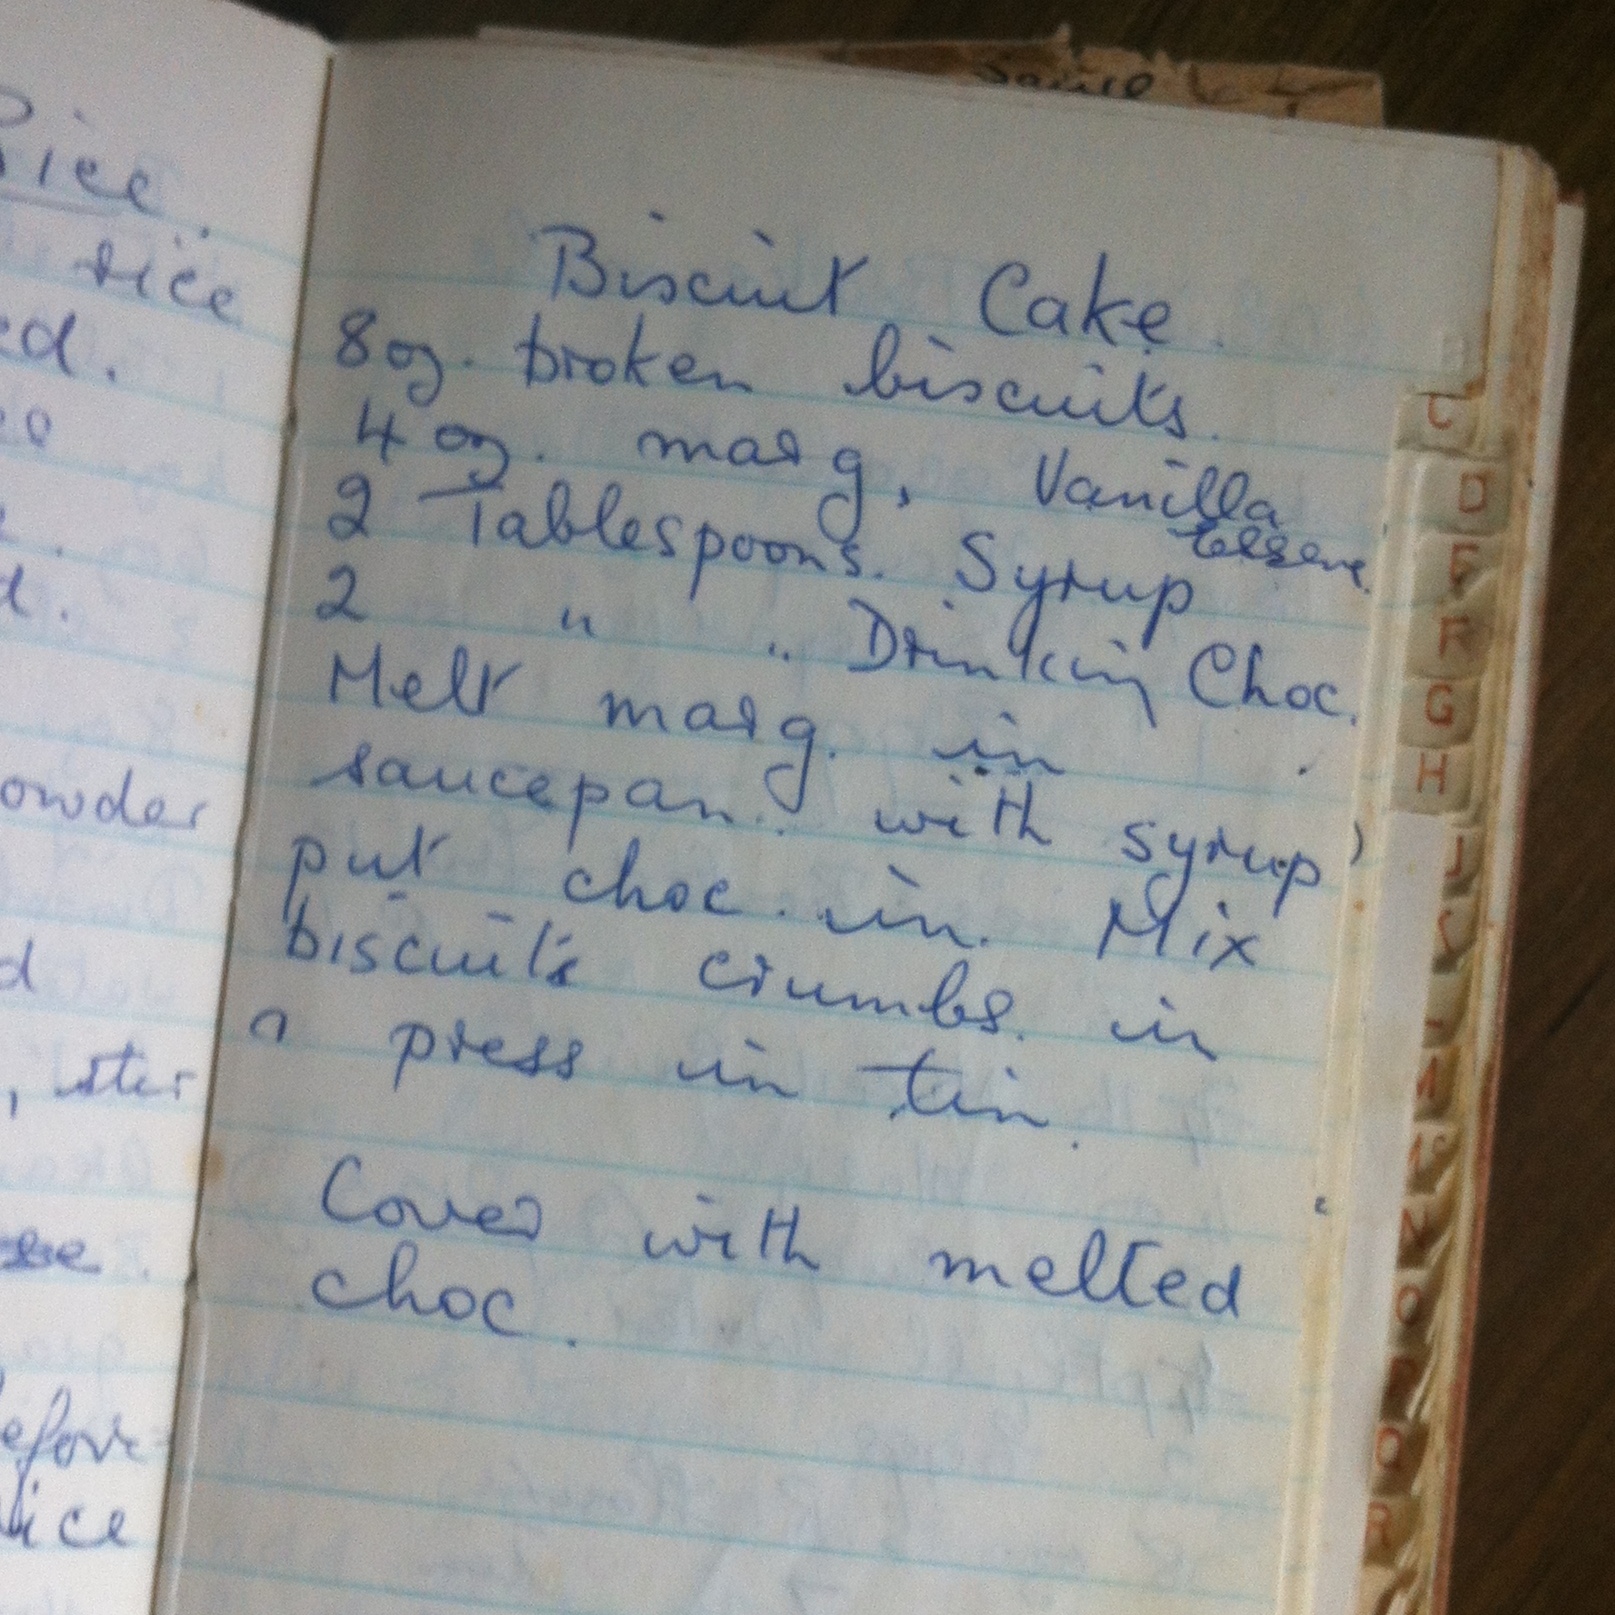 Sauce
rice
ed.
d.
owder
d
efore
Biscuit Cake.
8oz. broken biscuits.
4 oz. marg, Vanilla
Essence.
2 Tablespoons. Syrup
2 " " Drinking Choc.
Melt marg. in
saucepan. with syrup,
put choc. in. Mix
biscuits crumbs. in
n press in tin.
Cover with melted
choc.
C
D
F
G
H
J
M
N
O
R